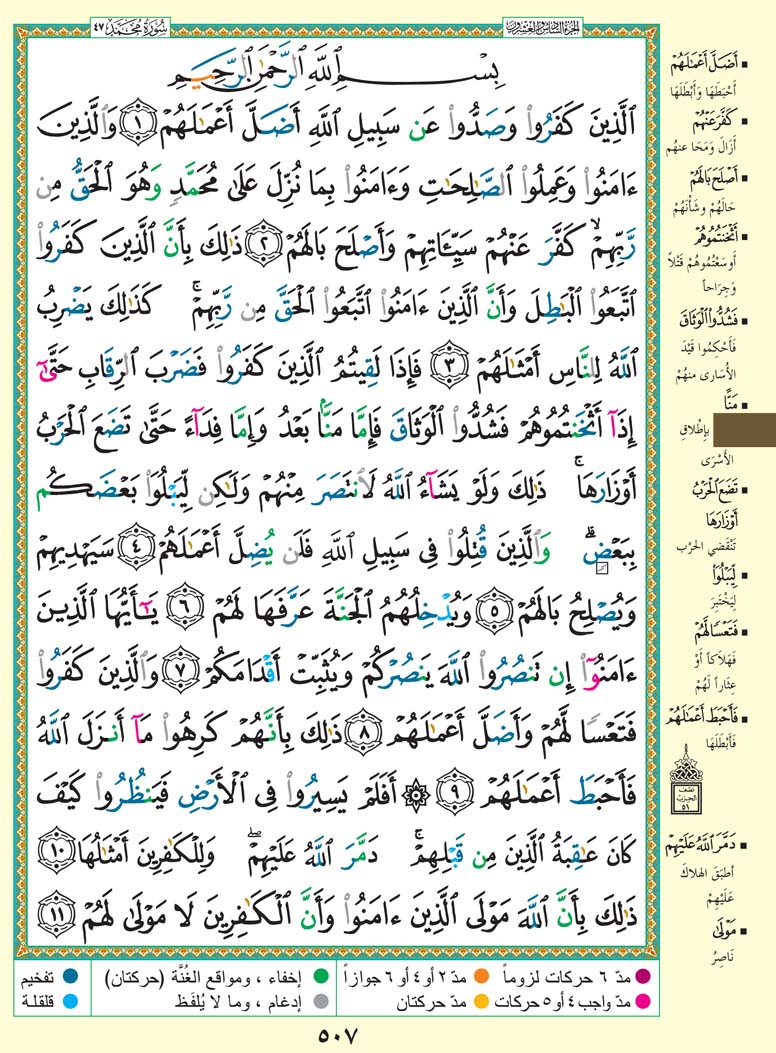 سُورَةُ مُحَمَّد ٤٧
الجُزءُ السَّادِسُ وَالعِشرُونَ
بِسْمِ ٱللَّهِ ٱلرَّحْمَٰنِ ٱلرَّحِيمِ
ٱلَّذِينَ كَفَرُوا۟ وَصَدُّوا۟ عَن سَبِيلِ ٱللَّهِ أَضَلَّ أَعْمَٰلَهُمْ ١ وَٱلَّذِينَ
ءَامَنُوا۟ وَعَمِلُوا۟ ٱلصَّٰلِحَٰتِ وَءَامَنُوا۟ بِمَا نُزِّلَ عَلَىٰ مُحَمَّدٍ وَهُوَ ٱلْحَقُّ مِن
رَّبِّهِمْ ۙ كَفَّرَ عَنْهُمْ سَيِّـَٔاتِهِمْ وَأَصْلَحَ بَالَهُمْ ٢ ذَٰلِكَ بِأَنَّ ٱلَّذِينَ كَفَرُوا۟
ٱتَّبَعُوا۟ ٱلْبَٰطِلَ وَأَنَّ ٱلَّذِينَ ءَامَنُوا۟ ٱتَّبَعُوا۟ ٱلْحَقَّ مِن رَّبِّهِمْ ۚ كَذَٰلِكَ يَضْرِبُ
ٱللَّهُ لِلنَّاسِ أَمْثَٰلَهُمْ ٣ فَإِذَا لَقِيتُمُ ٱلَّذِينَ كَفَرُوا۟ فَضَرْبَ ٱلرِّقَابِ حَتَّىٰٓ
إِذَآ أَثْخَنتُمُوهُمْ فَشُدُّوا۟ ٱلْوَثَاقَ فَإِمَّا مَنًّۢا بَعْدُ وَإِمَّا فِدَآءً حَتَّىٰ تَضَعَ ٱلْحَرْبُ
أَوْزَارَهَا ۚ ذَٰلِكَ وَلَوْ يَشَآءُ ٱللَّهُ لَٱنتَصَرَ مِنْهُمْ وَلَٰكِن لِّيَبْلُوَا۟ بَعْضَكُم
بِبَعْضٍ ۗ وَٱلَّذِينَ قُتِلُوا۟ فِى سَبِيلِ ٱللَّهِ فَلَن يُضِلَّ أَعْمَٰلَهُمْ ٤ سَيَهْدِيهِمْ
وَيُصْلِحُ بَالَهُمْ ٥ وَيُدْخِلُهُمُ ٱلْجَنَّةَ عَرَّفَهَا لَهُمْ ٦ يَٰٓأَيُّهَا ٱلَّذِينَ
ءَامَنُوٓا۟ إِن تَنصُرُوا۟ ٱللَّهَ يَنصُرْكُمْ وَيُثَبِّتْ أَقْدَامَكُمْ ٧ وَٱلَّذِينَ كَفَرُوا۟
فَتَعْسًا لَّهُمْ وَأَضَلَّ أَعْمَٰلَهُمْ ٨ ذَٰلِكَ بِأَنَّهُمْ كَرِهُوا۟ مَآ أَنزَلَ ٱللَّهُ
فَأَحْبَطَ أَعْمَٰلَهُمْ ٩ ۞ أَفَلَمْ يَسِيرُوا۟ فِى ٱلْأَرْضِ فَيَنظُرُوا۟ كَيْفَ
كَانَ عَٰقِبَةُ ٱلَّذِينَ مِن قَبْلِهِمْ ۚ دَمَّرَ ٱللَّهُ عَلَيْهِمْ ۖ وَلِلْكَٰفِرِينَ أَمْثَٰلُهَا ١٠
ذَٰلِكَ بِأَنَّ ٱللَّهَ مَوْلَى ٱلَّذِينَ ءَامَنُوا۟ وَأَنَّ ٱلْكَٰفِرِينَ لَا مَوْلَىٰ لَهُمْ ١١
أَضَلَّ أَعْمَٰلَهُمْ
أَحْبَطَهَا وَأَبْطَلَهَا
كَفَّرَ عَنْهُمْ
أَزَالَ وَمَحَا عنهُم
أَصْلَحَ بَالَهُمْ
حَالَهُمْ وشَأْنَهُمْ
أَثْخَنتُمُوهُمْ
أَوسَعْتُمُوهُمْ قَتْلاً
وَجِرَاحاً
فَشُدُّوا۟ ٱلْوَثَاقَ
فَأَحْكِمُوا قَيْدَ
الأُسَارى منهُمْ
مَنًّا
بإطْلاقِ
الأَسْرَى
تَضَعَ ٱلْحَرْبُ
أَوْزَارَهَا
تَنْقَضي الحرْب
لِيَبْلُوَا۟
لِيَخْتَبِرَ
فَتَعْسًا لَّهُمْ
فَهَلاَكاً أوْ
عِثَاراً لَهُمْ
فَأَحْبَطَ أَعْمَٰلَهُمْ
فَأَبْطَلَهَا
نصف
الحزب
٥١
دَمَّرَ ٱللَّهُ عَلَيْهِمْ
أطبَقَ الهلاكَ
عَلَيْهِمْ
مَوْلَىٰ
نَاصِرُ
مدّ ٦ حركات لزوماً
مدّ ٢ أو ٤ أو ٦ جوازاً
إخفاء ، ومواقع الغُنَّة (حركتان)
تفخيم
مدّ واجب ٤ أو ٥ حركات
مدّ حركتان
إدغام ، وما لا يُلفَظ
قلقلة
٥٠٧